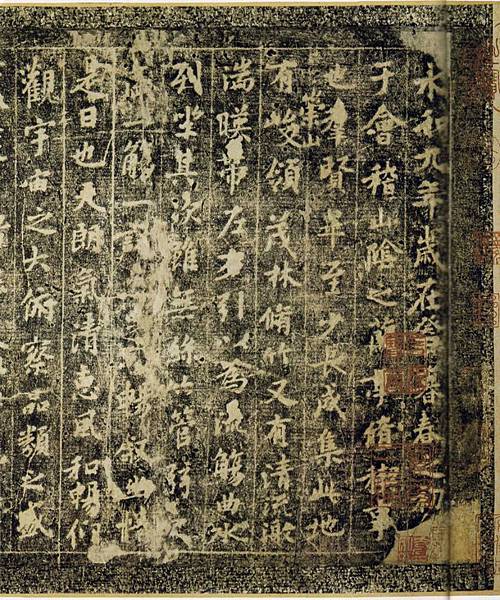 永和九年歲在癸丑暮春之初
于會稽山陰之蘭亭脩禊事
也羣賢畢至少長咸集此地
有崇山峻領茂林脩竹又有清流激
湍暎帶左右引以為流觴曲水
列坐其次雖無絲竹管弦之
盛一觴一詠暢敘幽情
是日也天朗氣清惠風和暢仰
觀宇宙之大俯察品類之盛